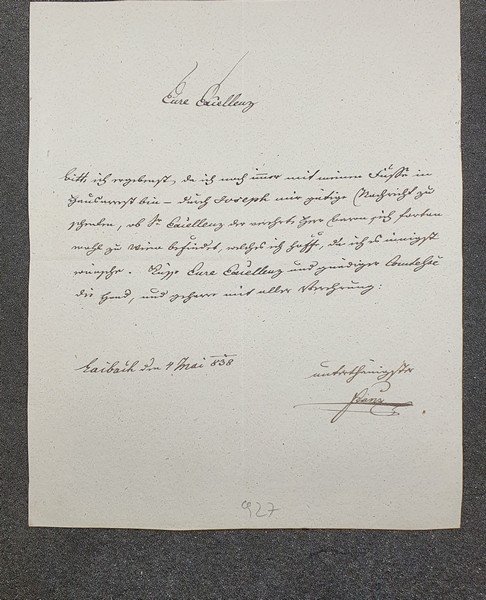 Eure Excellenz
bitte ich ergebenst, da ich noch immer mit meinem Fusse in
Hausarrest bin – durch Joseph mir gütige Nachricht zu
schenken, ob Se Excellenz der verehrte Herr Baron sich fortan
wohl zu Wien befindet, welches ich hoffe, da ich es innigst
wünsche. Küsse Eure Excellenz und gnädiger Comtesse
die Hand, und geharre mit aller Verehrung:
Laibach den 4 Mai 838
unterthänigster
927